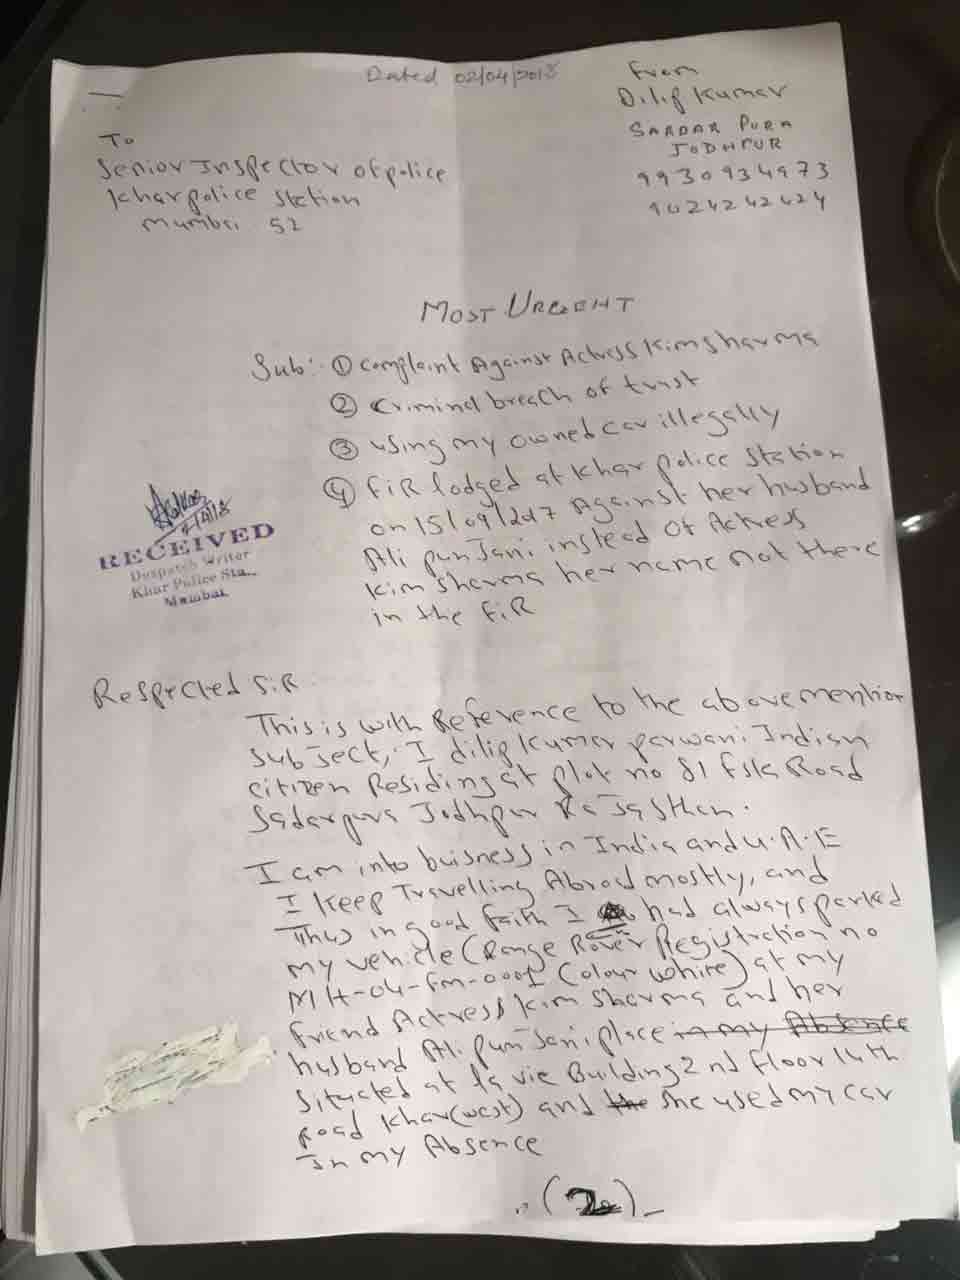 Dated 02/04/2018
From
Dilip Kumar
SARDAR PURA
JODHPUR
9930934973
9024242424
To
Senior Inspector of police
Khar police station
Mumbai 52
MOST URGENT
Sub: ① Complaint Against Actress Kim sharma
② Criminal breach of trust
③ using my owned car illegally
④ FiR lodged at Khar police station
on 15/09/2017 Against her husband
Ali punJani instead of Actress
Kim sharma her name not there
in the FiR
RECEIVED
Despatch Writer
Khar Police Stn.,
Mumbai
Respected SiR
This is with Reference to the above mention
Subject, I dilip Kumar parwani Indian
citizen Residing at plot no 81 Road
Sadarpura Jodhpur RaJasthan.
I am into buisness in India and U.A.E
I keep Travelling Abroad mostly, and
Thus in good faith I had always parked
my vehicle (Range Rover Registration no
MH-04-FM-0001 Colour White) at my
friend Actress Kim Sharma and her
husband Ali punJani place in my Absence
situated at la vie Building 2nd floor 14th
Road Khar (west) and the she used my car
In my Absence
(2)